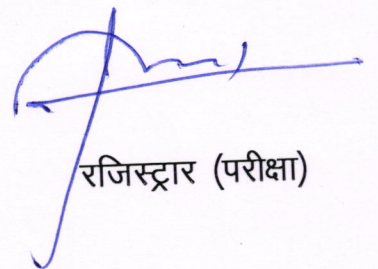 रजिस्ट्रार (परीक्षा)